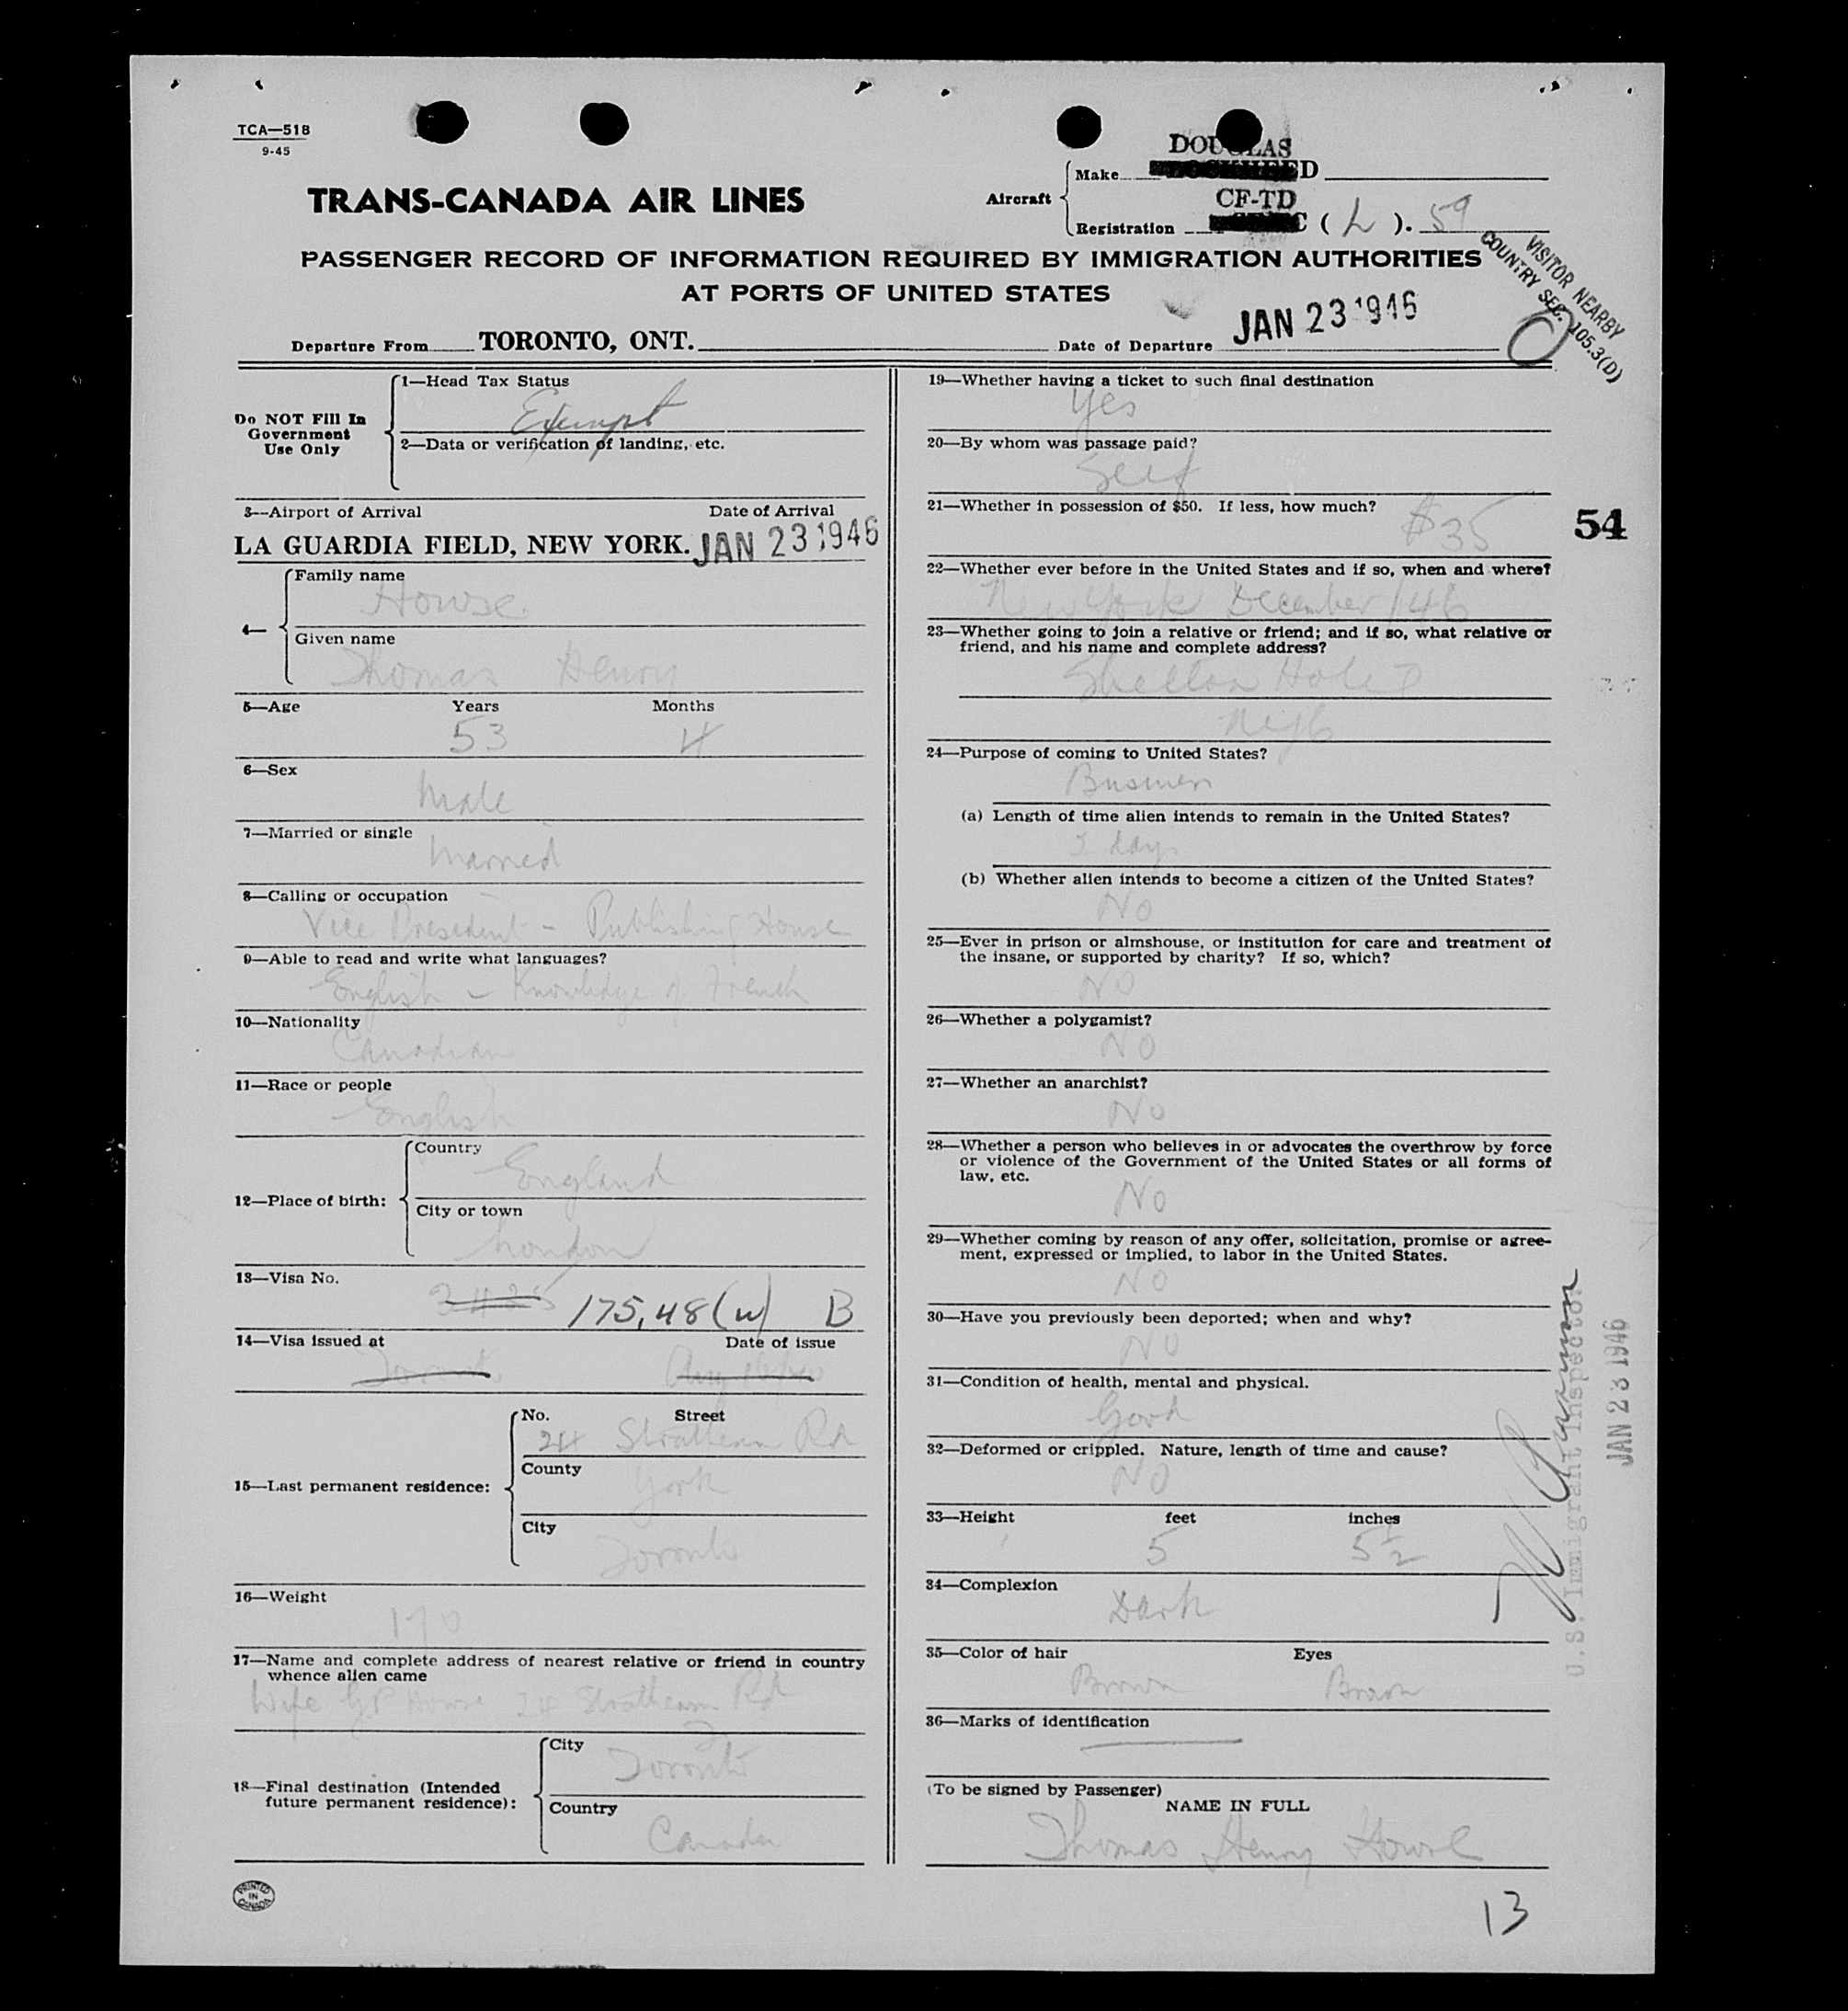 TCA—518
9-45
TRANS-CANADA AIR LINES
Aircraft
Make DOUGLAS
Registration CF-TD C ( L ). 59
PASSENGER RECORD OF INFORMATION REQUIRED BY IMMIGRATION AUTHORITIES
AT PORTS OF UNITED STATES
VISITOR NEARBY
COUNTRY SEC. 105.3(D)
Departure From TORONTO, ONT. Date of Departure JAN 23 1946
Do NOT Fill In
Government
Use Only
1—Head Tax Status
Exempt
2—Data or verification of landing, etc.
3—Airport of Arrival Date of Arrival
LA GUARDIA FIELD, NEW YORK. JAN 23 1946
4—
Family name
Howse
Given name
Thomas Henry
5—Age Years Months
53 4
6—Sex
Male
7—Married or single
Married
8—Calling or occupation
Vice President - Publishing House
9—Able to read and write what languages?
English - Knowledge of French
10—Nationality
Canadian
11—Race or people
English
12—Place of birth:
Country
England
City or town
London
13—Visa No.
175,48 (w) B
14—Visa issued at Date of issue
Toronto
15—Last permanent residence:
No. Street
24 Strathearn Rd
County
York
City
Toronto
16—Weight
170
17—Name and complete address of nearest relative or friend in country
whence alien came
Wife Howse 24 Strathearn Rd
18—Final destination (Intended
future permanent residence):
City
Toronto
Country
Canada
PRINTED
IN
CANADA
19—Whether having a ticket to such final destination
Yes
20—By whom was passage paid?
Self
21—Whether in possession of $50. If less, how much?
$35
54
22—Whether ever before in the United States and if so, when and where?
New York December /46
23—Whether going to join a relative or friend; and if so, what relative or
friend, and his name and complete address?
Shelton Hotel
24—Purpose of coming to United States?
Business
(a) Length of time alien intends to remain in the United States?
days
(b) Whether alien intends to become a citizen of the United States?
No
25—Ever in prison or almshouse, or institution for care and treatment of
the insane, or supported by charity? If so, which?
No
26—Whether a polygamist?
No
27—Whether an anarchist?
No
28—Whether a person who believes in or advocates the overthrow by force
or violence of the Government of the United States or all forms of
law, etc.
No
29—Whether coming by reason of any offer, solicitation, promise or agree-
ment, expressed or implied, to labor in the United States.
No
30—Have you previously been deported; when and why?
No
31—Condition of health, mental and physical.
Good
32—Deformed or crippled. Nature, length of time and cause?
No
33—Height feet inches
5 5½
34—Complexion
Dark
35—Color of hair Eyes
Brown Brown
36—Marks of identification
(To be signed by Passenger)
NAME IN FULL
Thomas Henry Howse
U.S. Immigrant Inspector
JAN 23 1946
13